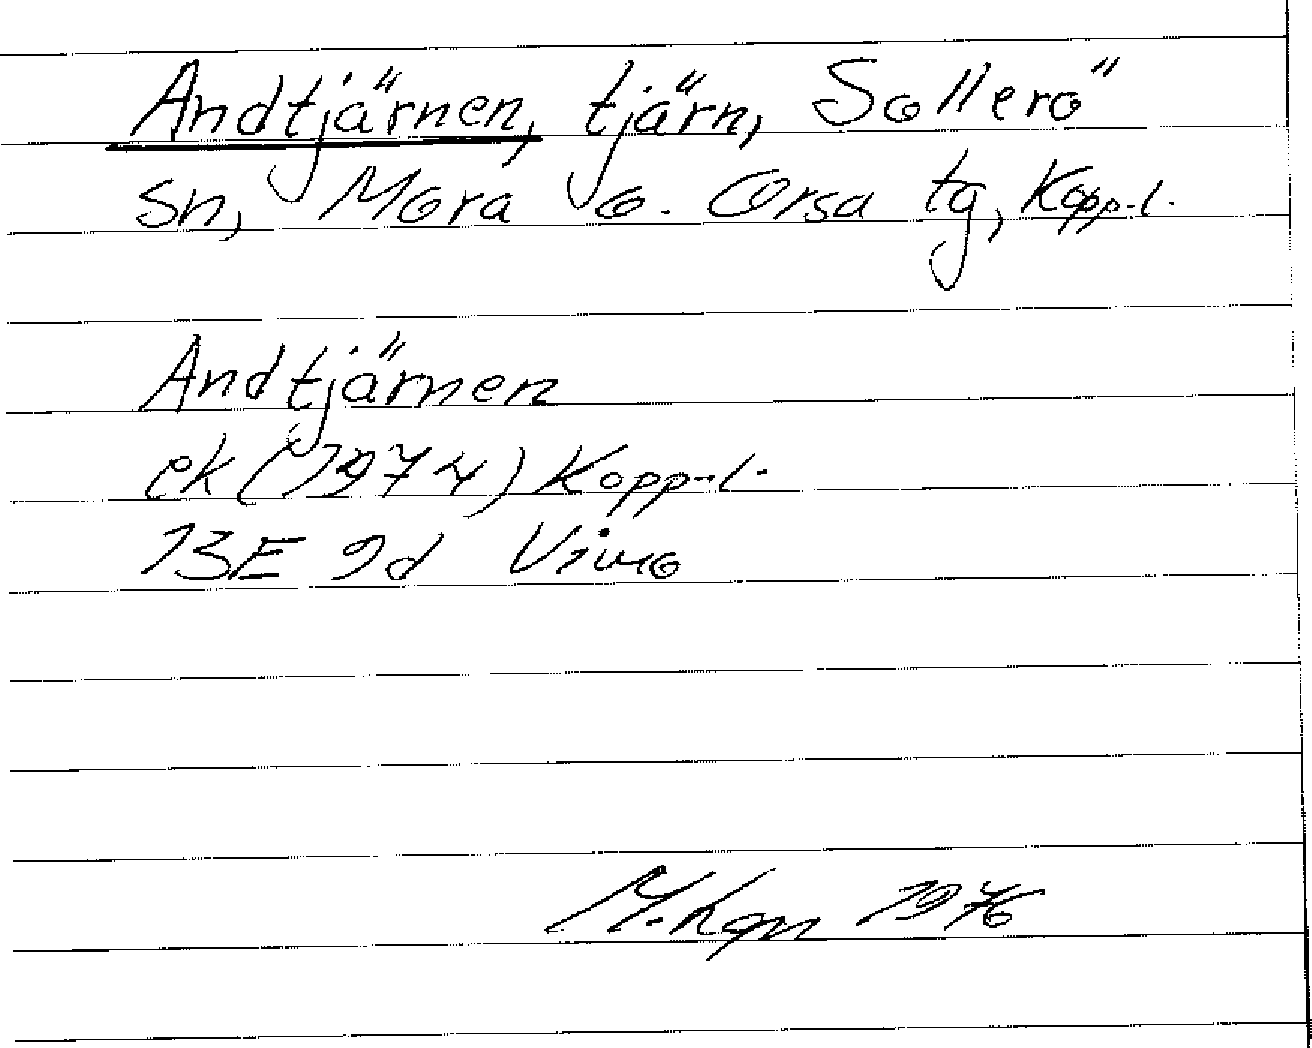 Andtjärnen, tjärn, Sollerö
sn, Mora o. Orsa tg, Kopp.l.
Andtjärnen
ek (1974) Kopp.l.
13E 9d Vimo
1976